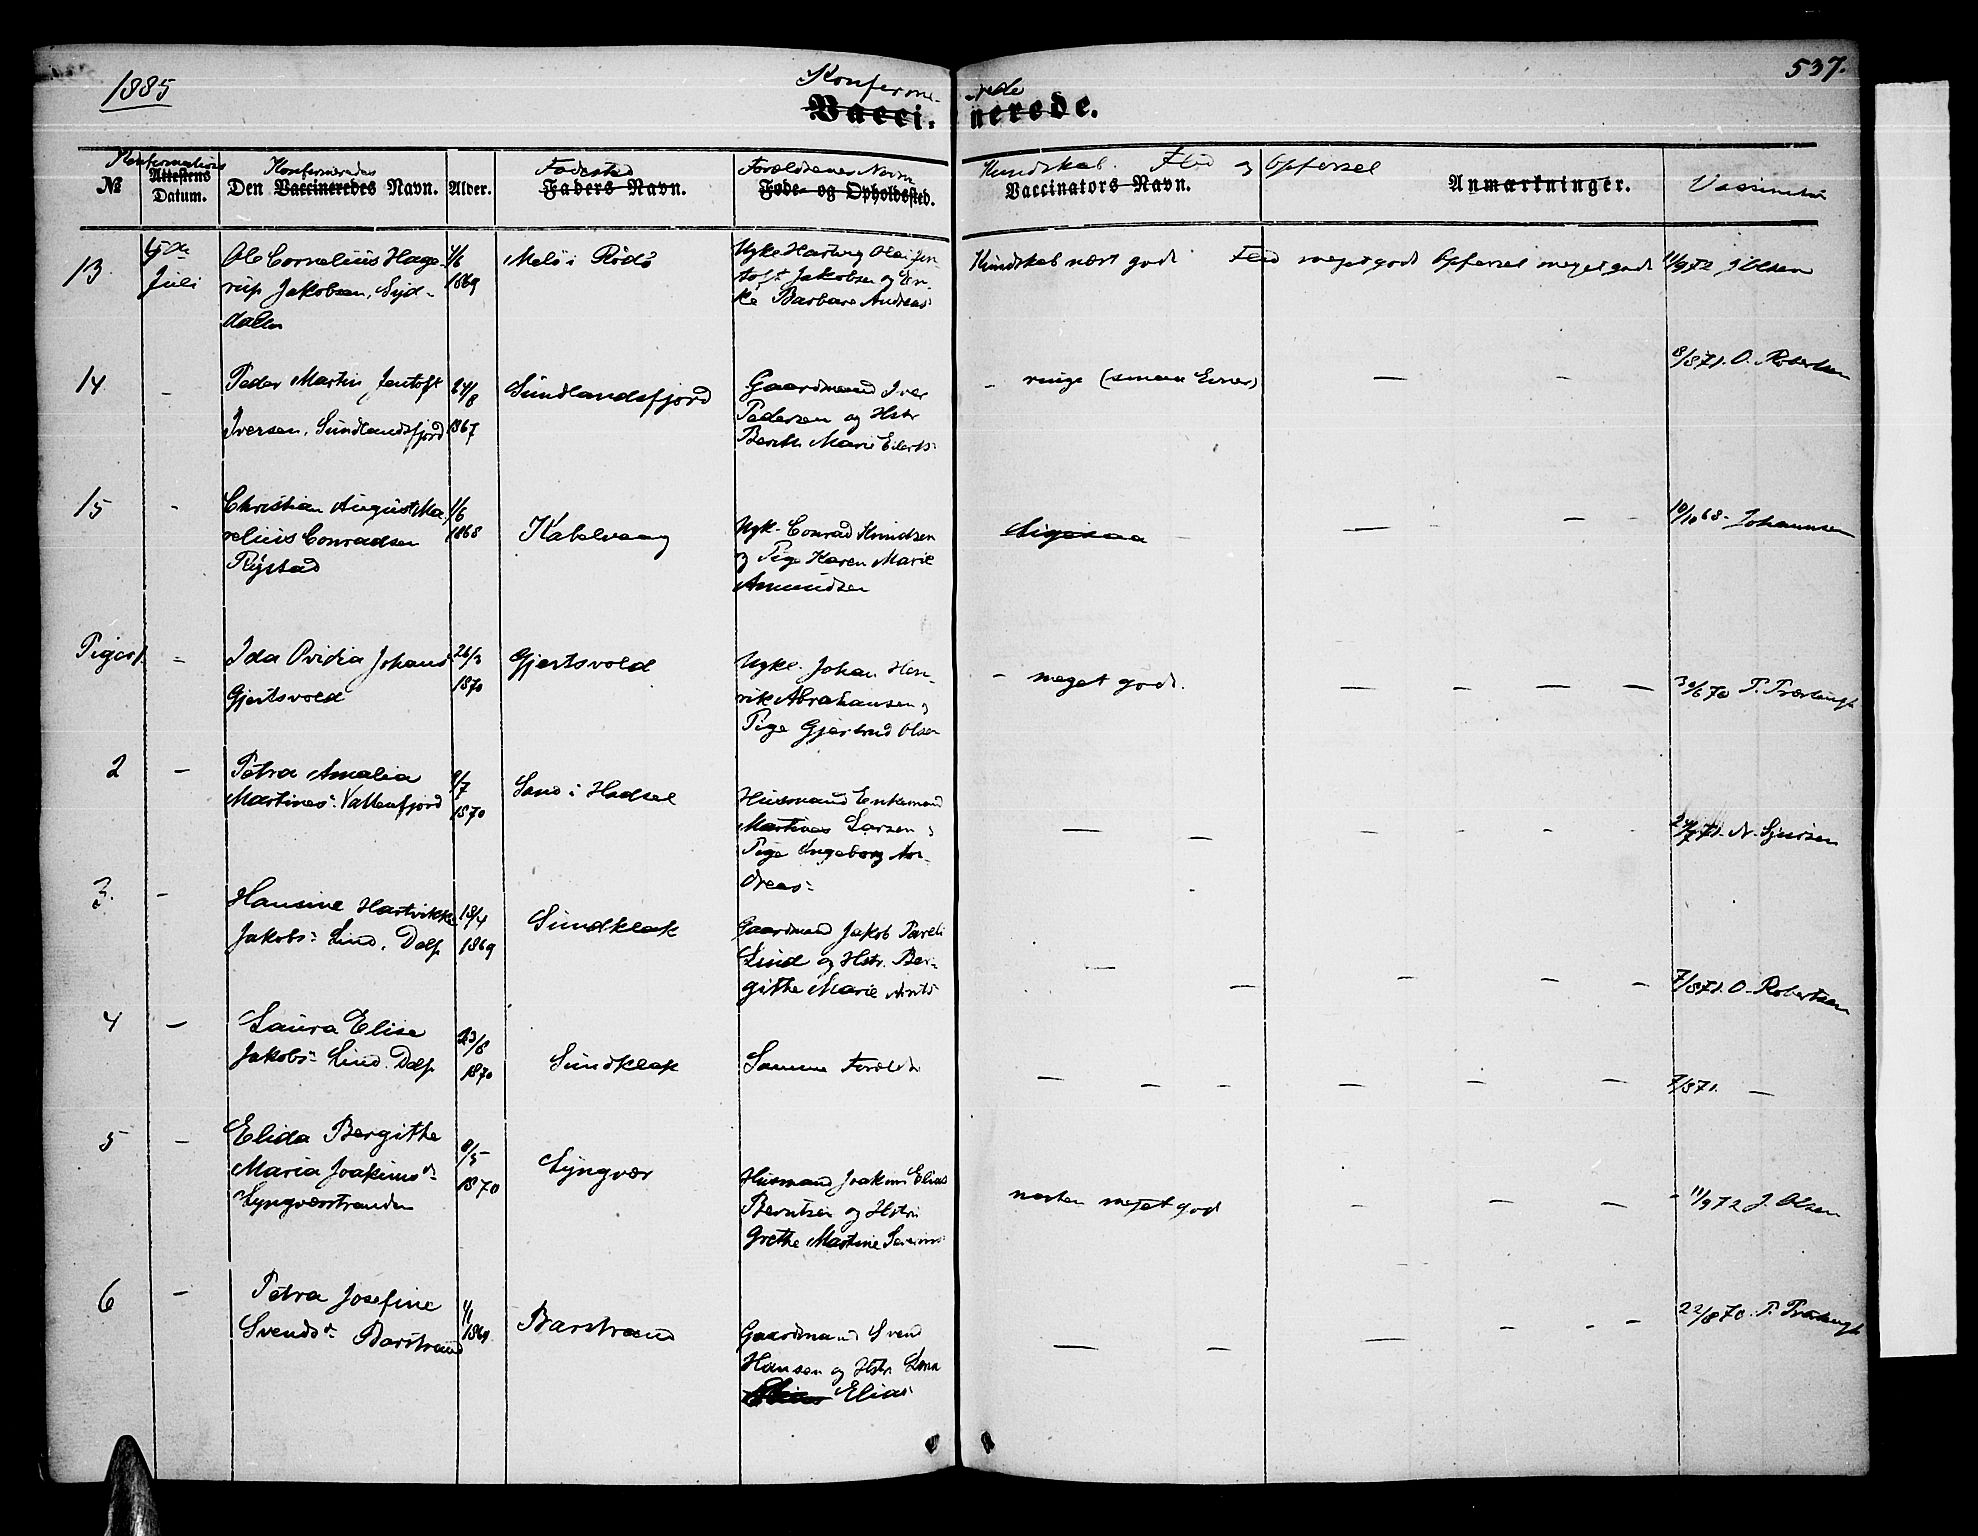 1885
Konferme-
rede
537.
Vacci-
nerede.
№
Konfirmations
Attestens
Datum.
Konfirmeredes
Den Vaccineredes Navn.
Alder.
Fødested
Faders Navn.
Forældrenes Navn
Føde- og Opholdssted.
Kundskab. Flid og Opførsel
Vaccinators Navn.
Anmærkninger.
13
Juli
Ole Cornelius Hage-
rup Jakobsen, Syd-
dalen
1/6
1869
Melö i Rödö
Ugke Hartvig Olai Jen-
toft Jakobsen og En-
ke Barbare Andreas:
Kundskab nært godt Flid meget godt Opførsel meget godt
11/9 72 J Olsen
14
-
Peder Martin Jentoft
Iversen, Sundlandsfjord
24/8
1867
Sundlandsfjord
Gaardmand Iver
Pedersen og Hstr
Berith Marie Eilerts:
- ringe (smaa Evner)
— -
8/8 71. O. Robertsen
15
-
Christian August Ma-
relius Conradsen
Rystad
1/6
1868
Kabelvaag
Ugk. Conrad Knudsen
og Pige Karen Marie
Amundsen
Ligesaa -
— - -
10/10 68 - Johannsen
Piger 1.
-
Ida Ovidia Johans
Gjertsvold
26/3
1870
Gjertsvold
Ugke. Johan Hen-
rik Abrahamsen og
Pige Gjertrud Olsen
- meget godt.
— — — —
30/6 70 P.
2
-
Petra Amalia
Martines: Vatterfjord
9/7
1870
Sand i Hadsel
Husmand Enkemand
Martines Larsen og
Pige Ingeborg An-
dreas:
— - - - -
71. N. Sjursen
3.
-
Hansine Hartvikke
Jakobs: Lind, Dolp
18/4
1869
Sundklak
Gaardmand Jakob Pareli
Lind og Hstr. Ber-
githe Marie Arnts
— - - - -
7/8 71. O. Robertsen
4
—
Laura Elise
Jakobs: Lind. Dolp
23/8
1870
Sundklak
Samme Foreldre
— - - - - -
7/8 71. —
5
-
Elida Bergithe
Maria Joakims:
Lyngværstranden
8/5
1870
Lyngvær
Husmand Joakim Elias
Berntsen og Hstr
Grethe Martine Severins
næsten meget god
- - -
11/9 72 J. Olsen
6
-
Petra Josefine
Svends: Barstrand
1/1
1869
Barstrand
Gaardmand Svend
Hansen og Hstr. Lena
Elias
— - — - - -
22/8 70. P.